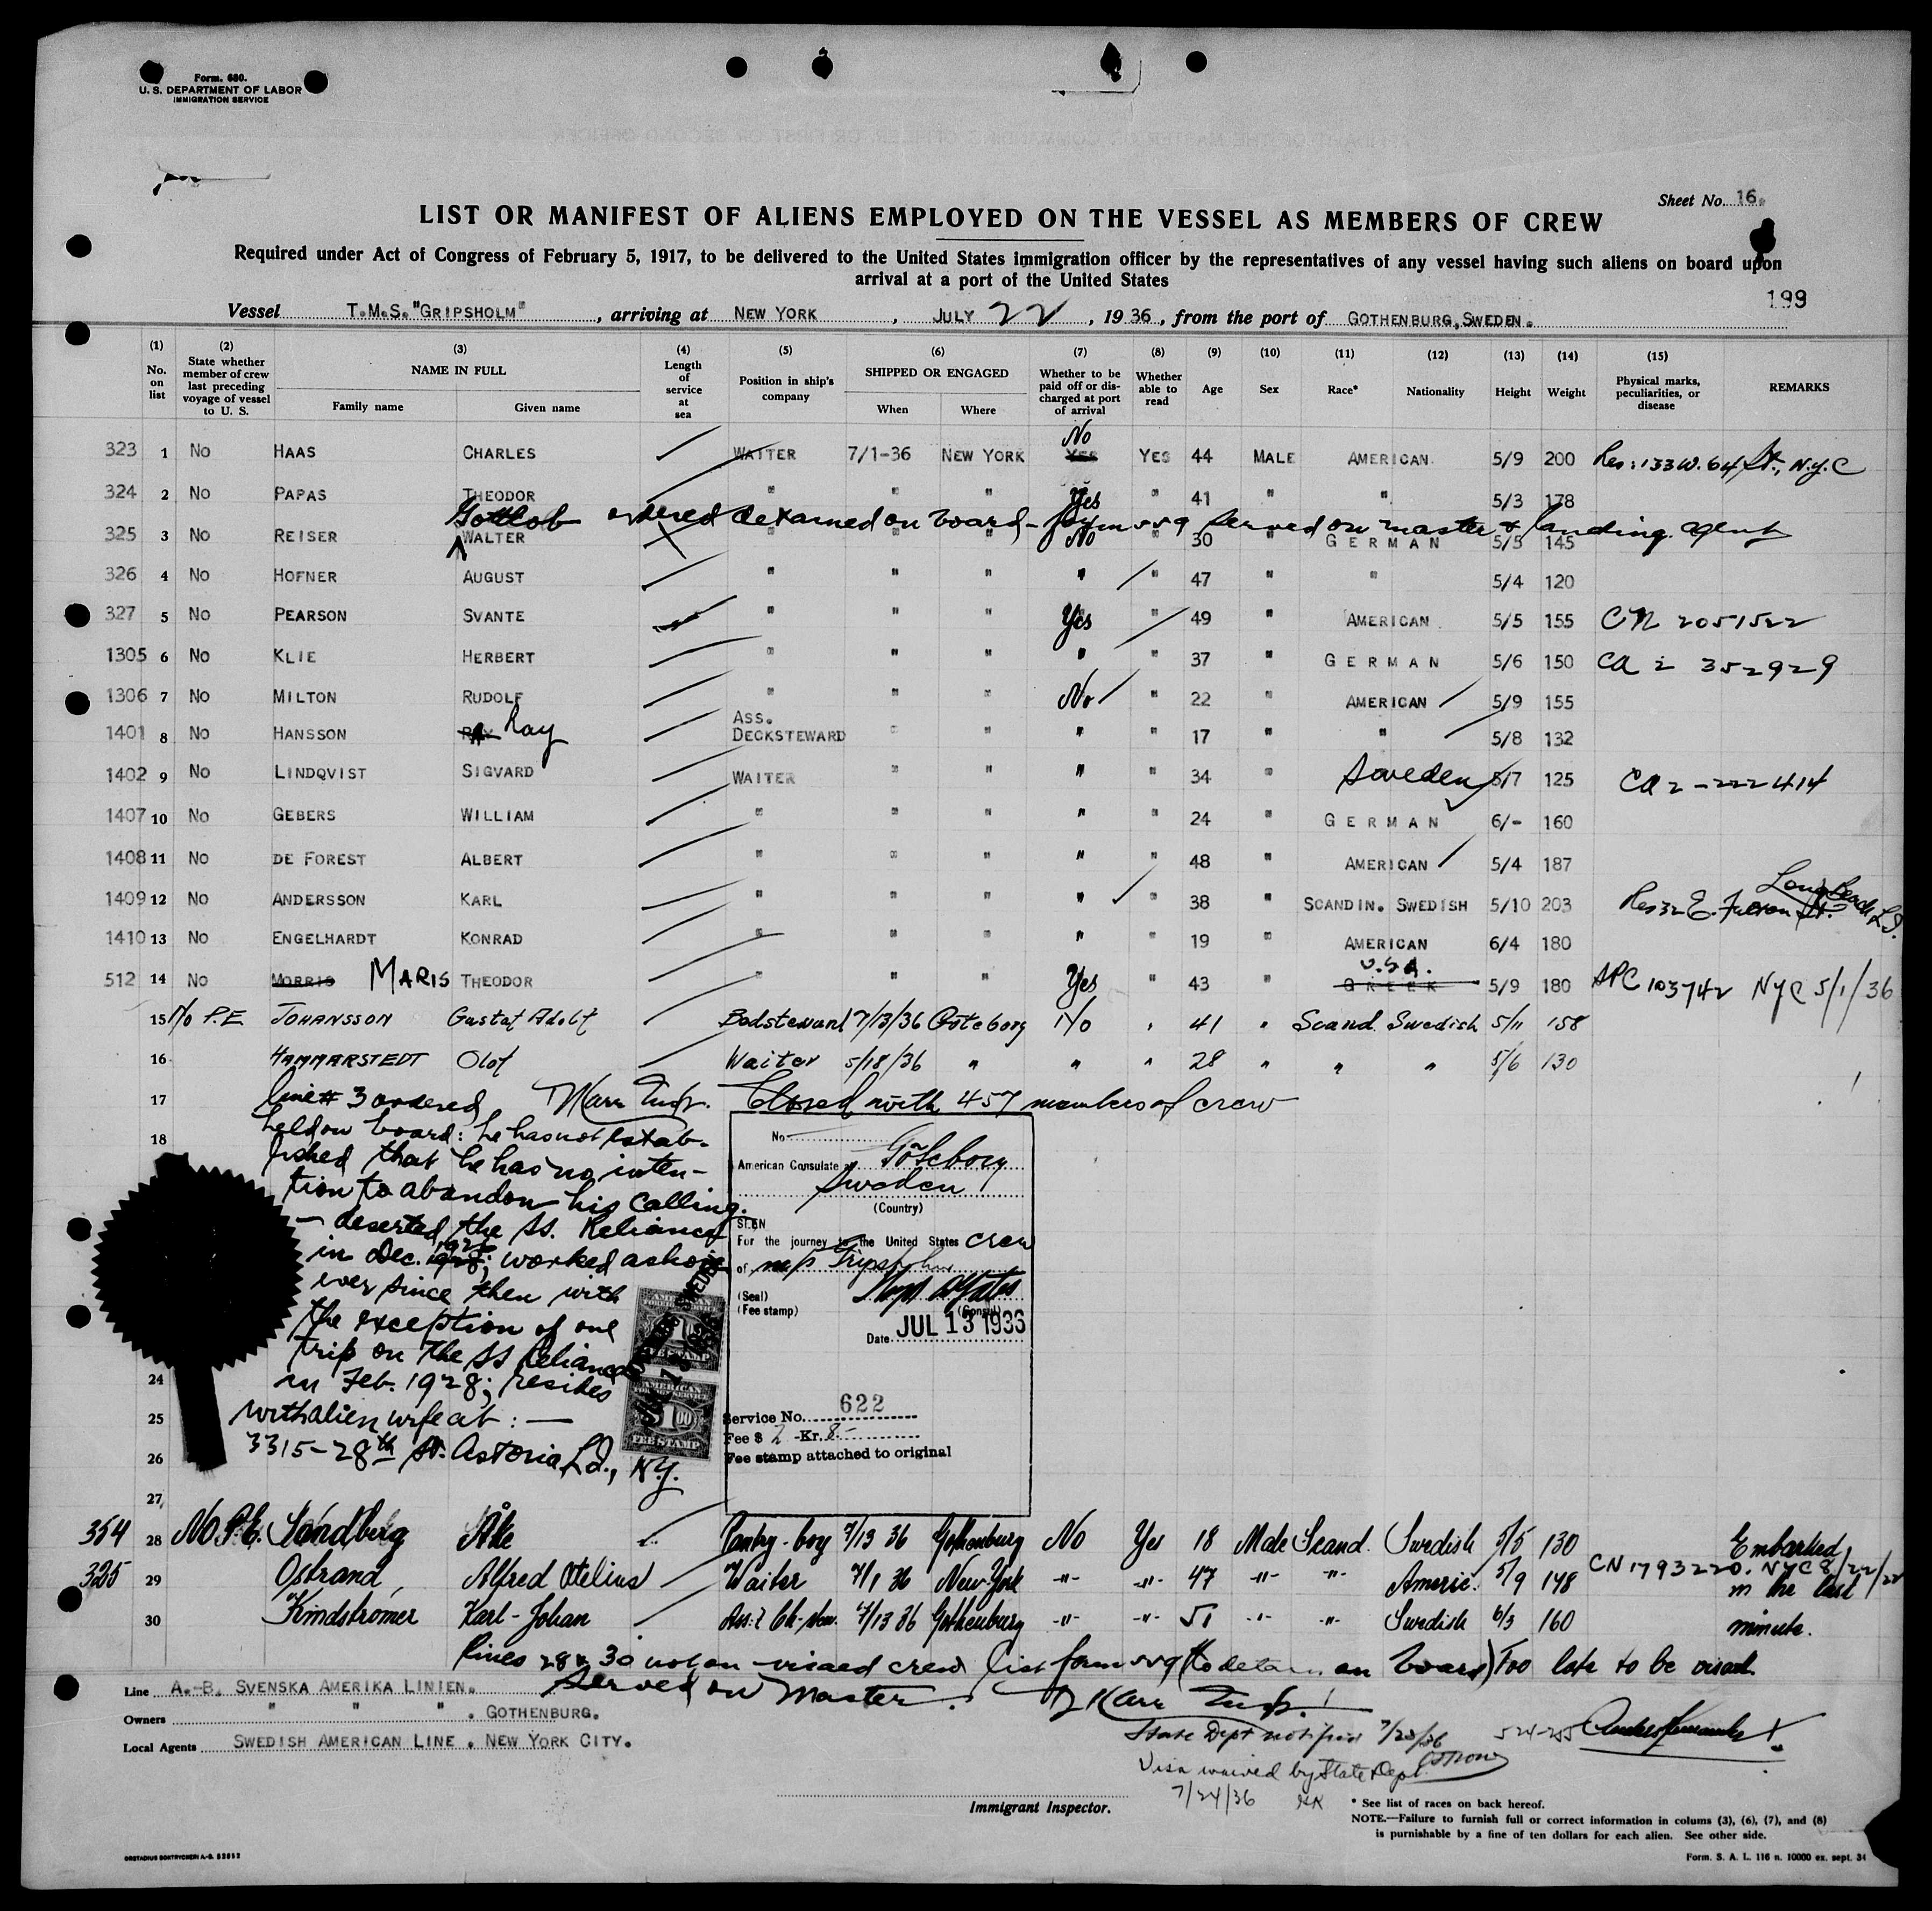 Form. 680.
U. S. DEPARTMENT OF LABOR
IMMIGRATION SERVICE
Sheet No. 16.
LIST OR MANIFEST OF ALIENS EMPLOYED ON THE VESSEL AS MEMBERS OF CREW
Required under Act of Congress of February 5, 1917, to be delivered to the United States immigration officer by the representatives of any vessel having such aliens on board upon
arrival at a port of the United States
199
Vessel T.M.S. "GRIPSHOLM", arriving at NEW YORK, JULY 22, 1936, from the port of GOTHENBURG, SWEDEN.
(1) No. on list (2) State whether member of crew last preceding voyage of vessel to U. S. (3) NAME IN FULL Family name Given name (4) Length of service at sea (5) Position in ship's company (6) SHIPPED OR ENGAGED When Where (7) Whether to be paid off or discharged at port of arrival (8) Whether able to read (9) Age (10) Sex (11) Race* (12) Nationality (13) Height (14) Weight (15) Physical marks, peculiarities, or disease REMARKS
323 1 No HAAS CHARLES WAITER 7/1-36 NEW YORK YES No YES 44 MALE AMERICAN 5/9 200 Res: 133 W. 64 St., N.Y.C
324 2 No PAPAS THEODOR " " " Yes " 41 " " 5/3 178
Gottlob ordered detained on board - form 559 served on master & landing agent
325 3 No REISER WALTER " " " No " 30 " GERMAN 5/5 145
326 4 No HOFNER AUGUST " " " " " 47 " " 5/4 120
327 5 No PEARSON SVANTE " " " Yes " 49 " AMERICAN 5/5 155 CN 2051522
1305 6 No KLIE HERBERT " " " " " 37 " GERMAN 5/6 150 CA 2 352929
1306 7 No MILTON RUDOLF " " " No " 22 " AMERICAN 5/9 155
1401 8 No HANSSON RAY Ray ASS. DECKSTEWARD " " " " 17 " " 5/8 132
1402 9 No LINDQVIST SIGVARD WAITER " " " " 34 " Sweden 5/7 125 CA 2-222414
1407 10 No GEBERS WILLIAM " " " " " 24 " GERMAN 6/- 160
1408 11 No DE FOREST ALBERT " " " " " 48 " AMERICAN 5/4 187
1409 12 No ANDERSSON KARL " " " " " 38 " SCANDIN. SWEDISH 5/10 203 Res 32 E. St. Long Beach L.I.
1410 13 No ENGELHARDT KONRAD " " " " " 19 " AMERICAN 6/4 180
512 14 No MORRIS MARIS THEODOR " " " Yes " 43 " GREEK U.S.A. 5/9 180 APC 103742 NYC 5/1/36
15 No P.E. JOHANSSON Gustaf Adolf Bedsteward 7/13/36 Göteborg No " 41 " Scand. Swedish 5/11 158
16 HAMMARSTEDT Olof Waiter 5/18/36 " " " 28 " " " 5/6 130
17 line # 3 ordered Insp. Closed with 457 members of crew
18 held on board: he has not estab-
lished that he has no inten-
tion to abandon his calling.
- deserted the ss. Reliance
in Dec. ; worked ashore
ever since then with
the exception of one
trip on the SS Reliance
24 in Feb. 1928; resides
25 with alien wife at: -
26 3315-28th St. Astoria L.I., N.Y.
27
No
American Consulate at Göteborg
Sweden
(Country)
SEEN
For the journey to the United States crew
of m/s Gripsholm
(Seal)
(Fee stamp)
(Consul)
Date JUL 13 1936
Service No. 622
Fee $ 2 -Kr. 8-
Fee stamp attached to original
AMERICAN
FOREIGN SERVICE
FEE STAMP
AMERICAN
FOREIGN SERVICE
$1.00
FEE STAMP
354 28 No P.E. Sandberg Åke Pantry-boy 7/13 36 Gothenburg No Yes 18 Male Scand. Swedish 5/5 130 Embarked
325 29 Ostrand Alfred Otelius Waiter 7/1 36 New-York -"- -"- 47 -"- -"- Americ. 5/9 148 CN 1793220. NYC 8/22/22 in the last
30 Kindstromer Karl-Johan 7/13 36 Gothenburg -"- -"- 51 -"- -"- Swedish 6/3 160 minute.
Lines 28 & 30 not on visaed crew list form 559 (to detain on board) Too late to be visaed.
served on Master. Insp.
Line A.-B. SVENSKA AMERIKA LINIEN.
Owners " " " . GOTHENBURG.
Local Agents SWEDISH AMERICAN LINE . NEW YORK CITY.
State Dept notified 7/23/36
524-25
Visa waived by State Dept.
7/24/36
Immigrant Inspector.
* See list of races on back hereof.
NOTE.—Failure to furnish full or correct information in colums (3), (6), (7), and (8)
is punishable by a fine of ten dollars for each alien. See other side.
Form. S. A. L. 116 n. 10000 ex. sept. 34